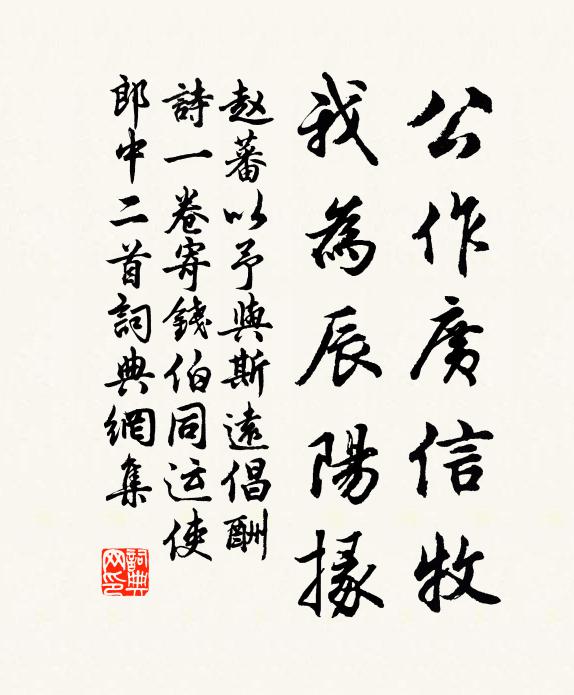 公作廣信牧
我為辰陽掾
赵蕃以予與斯遠倡酬
詩一卷寄錢伯同运使
郎中二首詞典網集
詞典网印